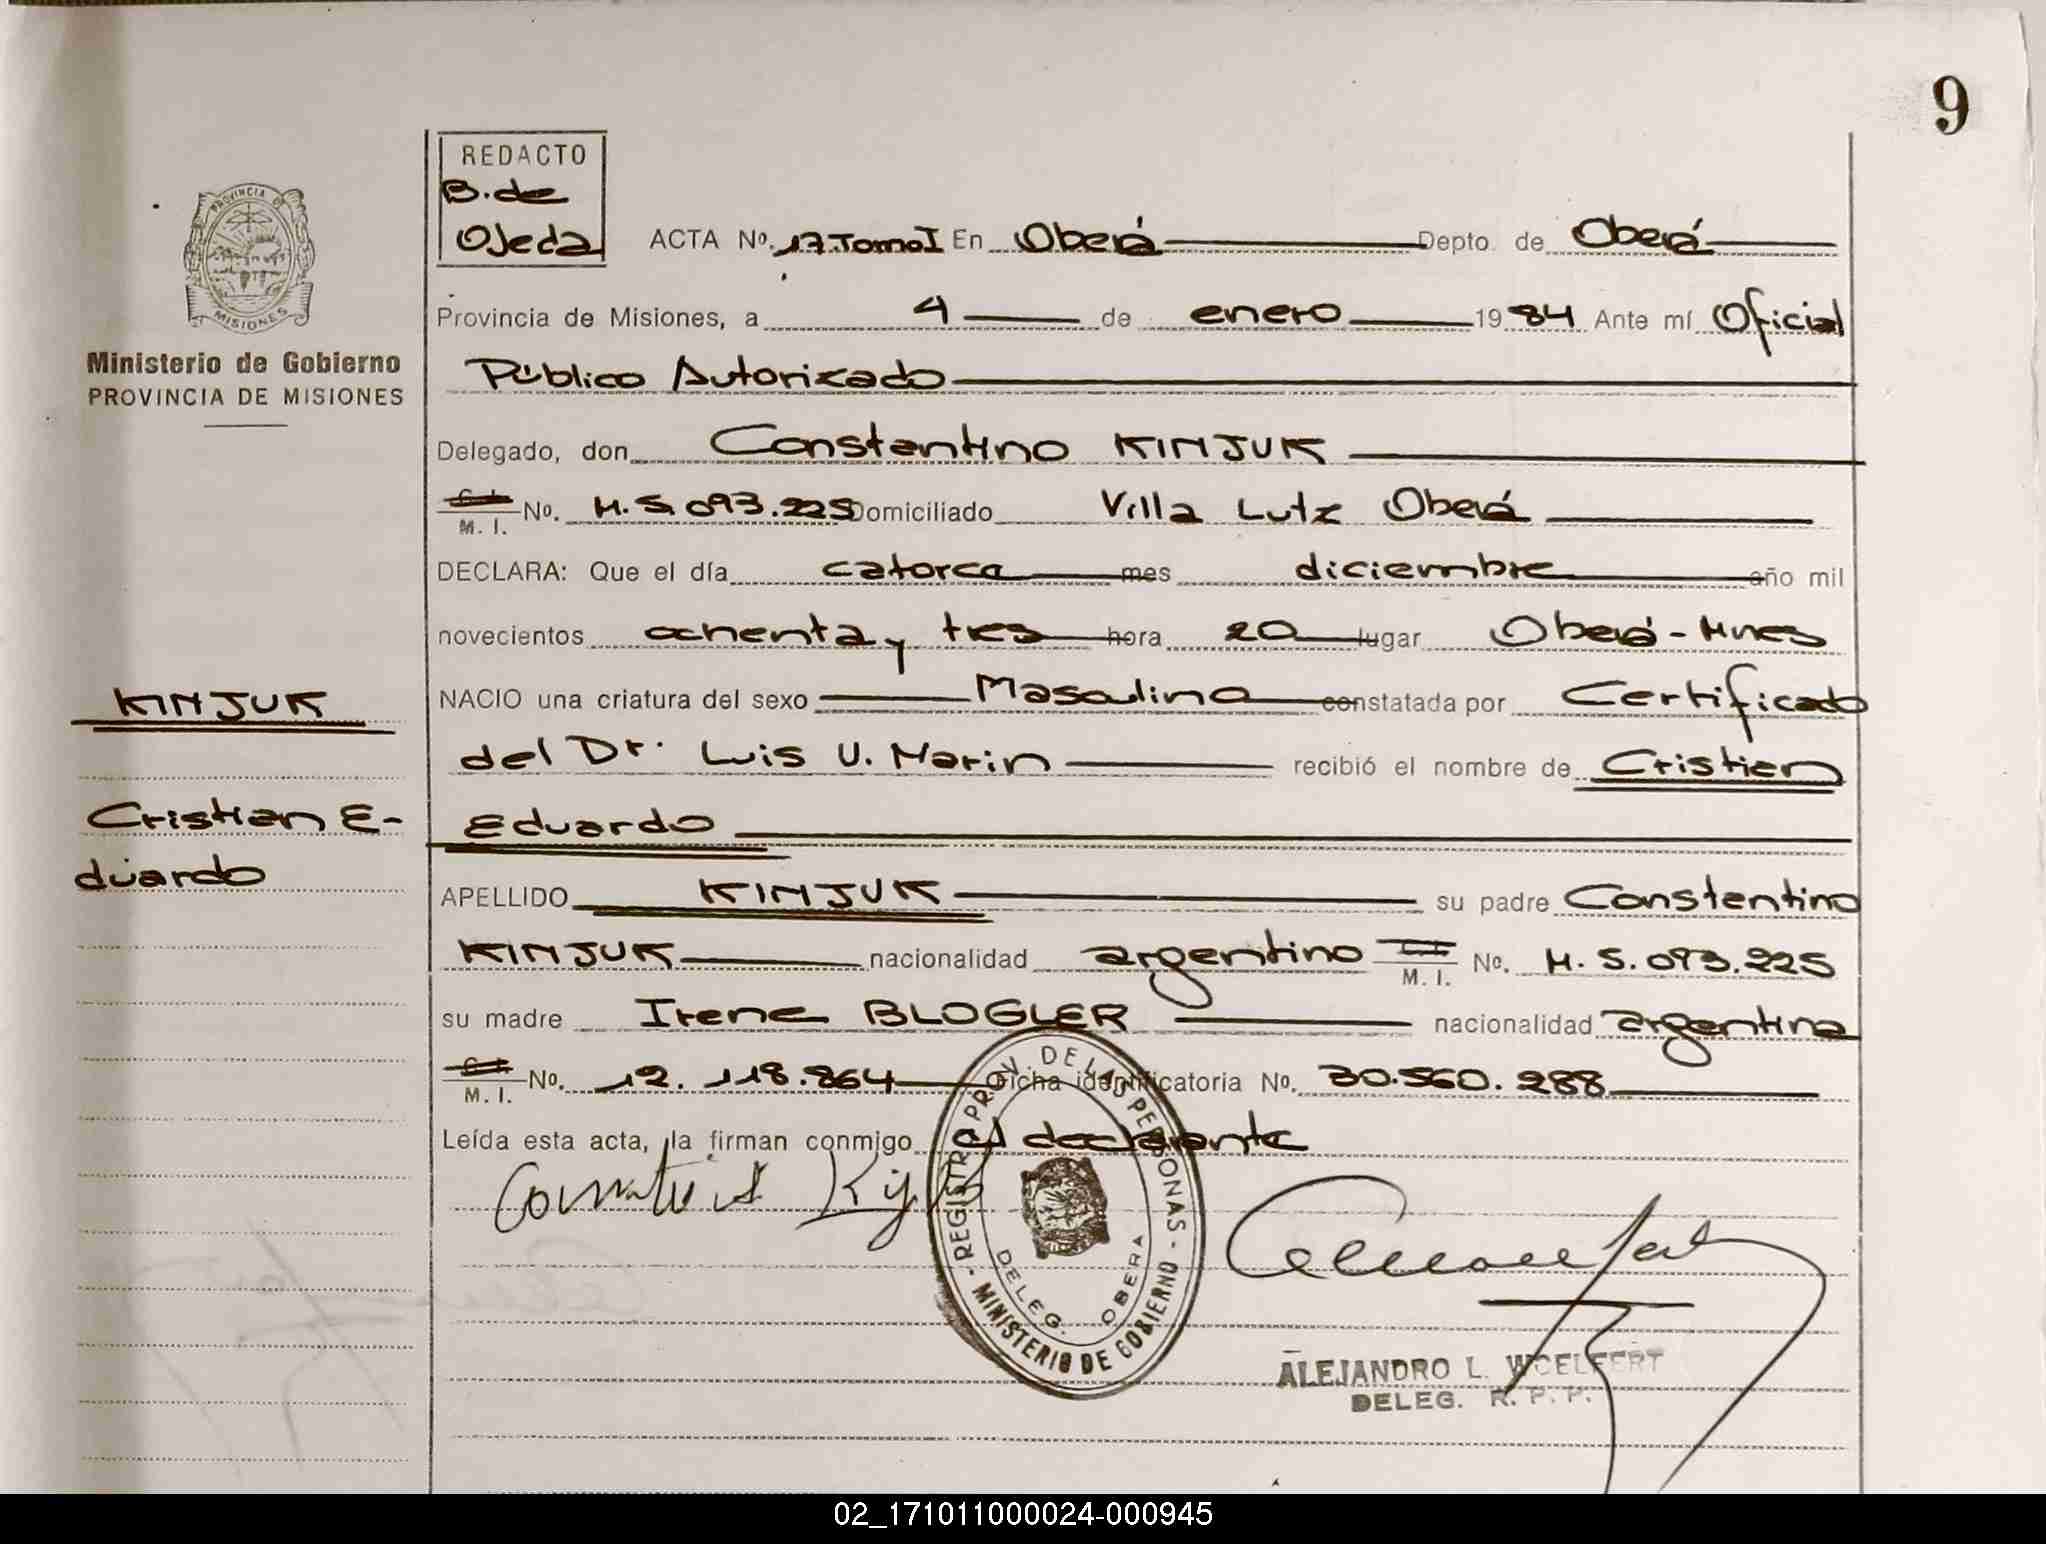 9
REDACTO
B. de
Ojeda
PROVINCIA DE
MISIONES
Ministerio de Gobierno
PROVINCIA DE MISIONES
ACTA Nº. 17.Tomo I En Oberá Depto. de Oberá
Provincia de Misiones, a 4 de enero 1984 Ante mí Oficial
Público Autorizado
Delegado, don Constantino KINJUK
C. I. M. I. No. M. 5.093.225 Domiciliado Villa Lutz Oberá
DECLARA: Que el día catorce mes diciembre año mil
novecientos ochenta y tres hora 20 lugar Oberá - Mnes
NACIO una criatura del sexo Masculino constatada por Certificado
del Dr. Luis U. Marin recibió el nombre de Cristian
Eduardo
APELLIDO KINJUK su padre Constantino
KINJUK nacionalidad argentino C. I. M. I. No. M. 5.093.225
su madre Irene BLOGLER nacionalidad argentina
C. I. M. I. No. 12.118.864 Ficha identificatoria No. 30.560.288
Leída esta acta, la firman conmigo el declarante
KINJUK
Cristian E-
duardo
REGISTRO PROV. DE LAS PERSONAS
MINISTERIO DE GOBIERNO
DELEG. OBERA
ALEJANDRO L. WOELFERT
DELEG. R. P. P.
02_171011000024-000945